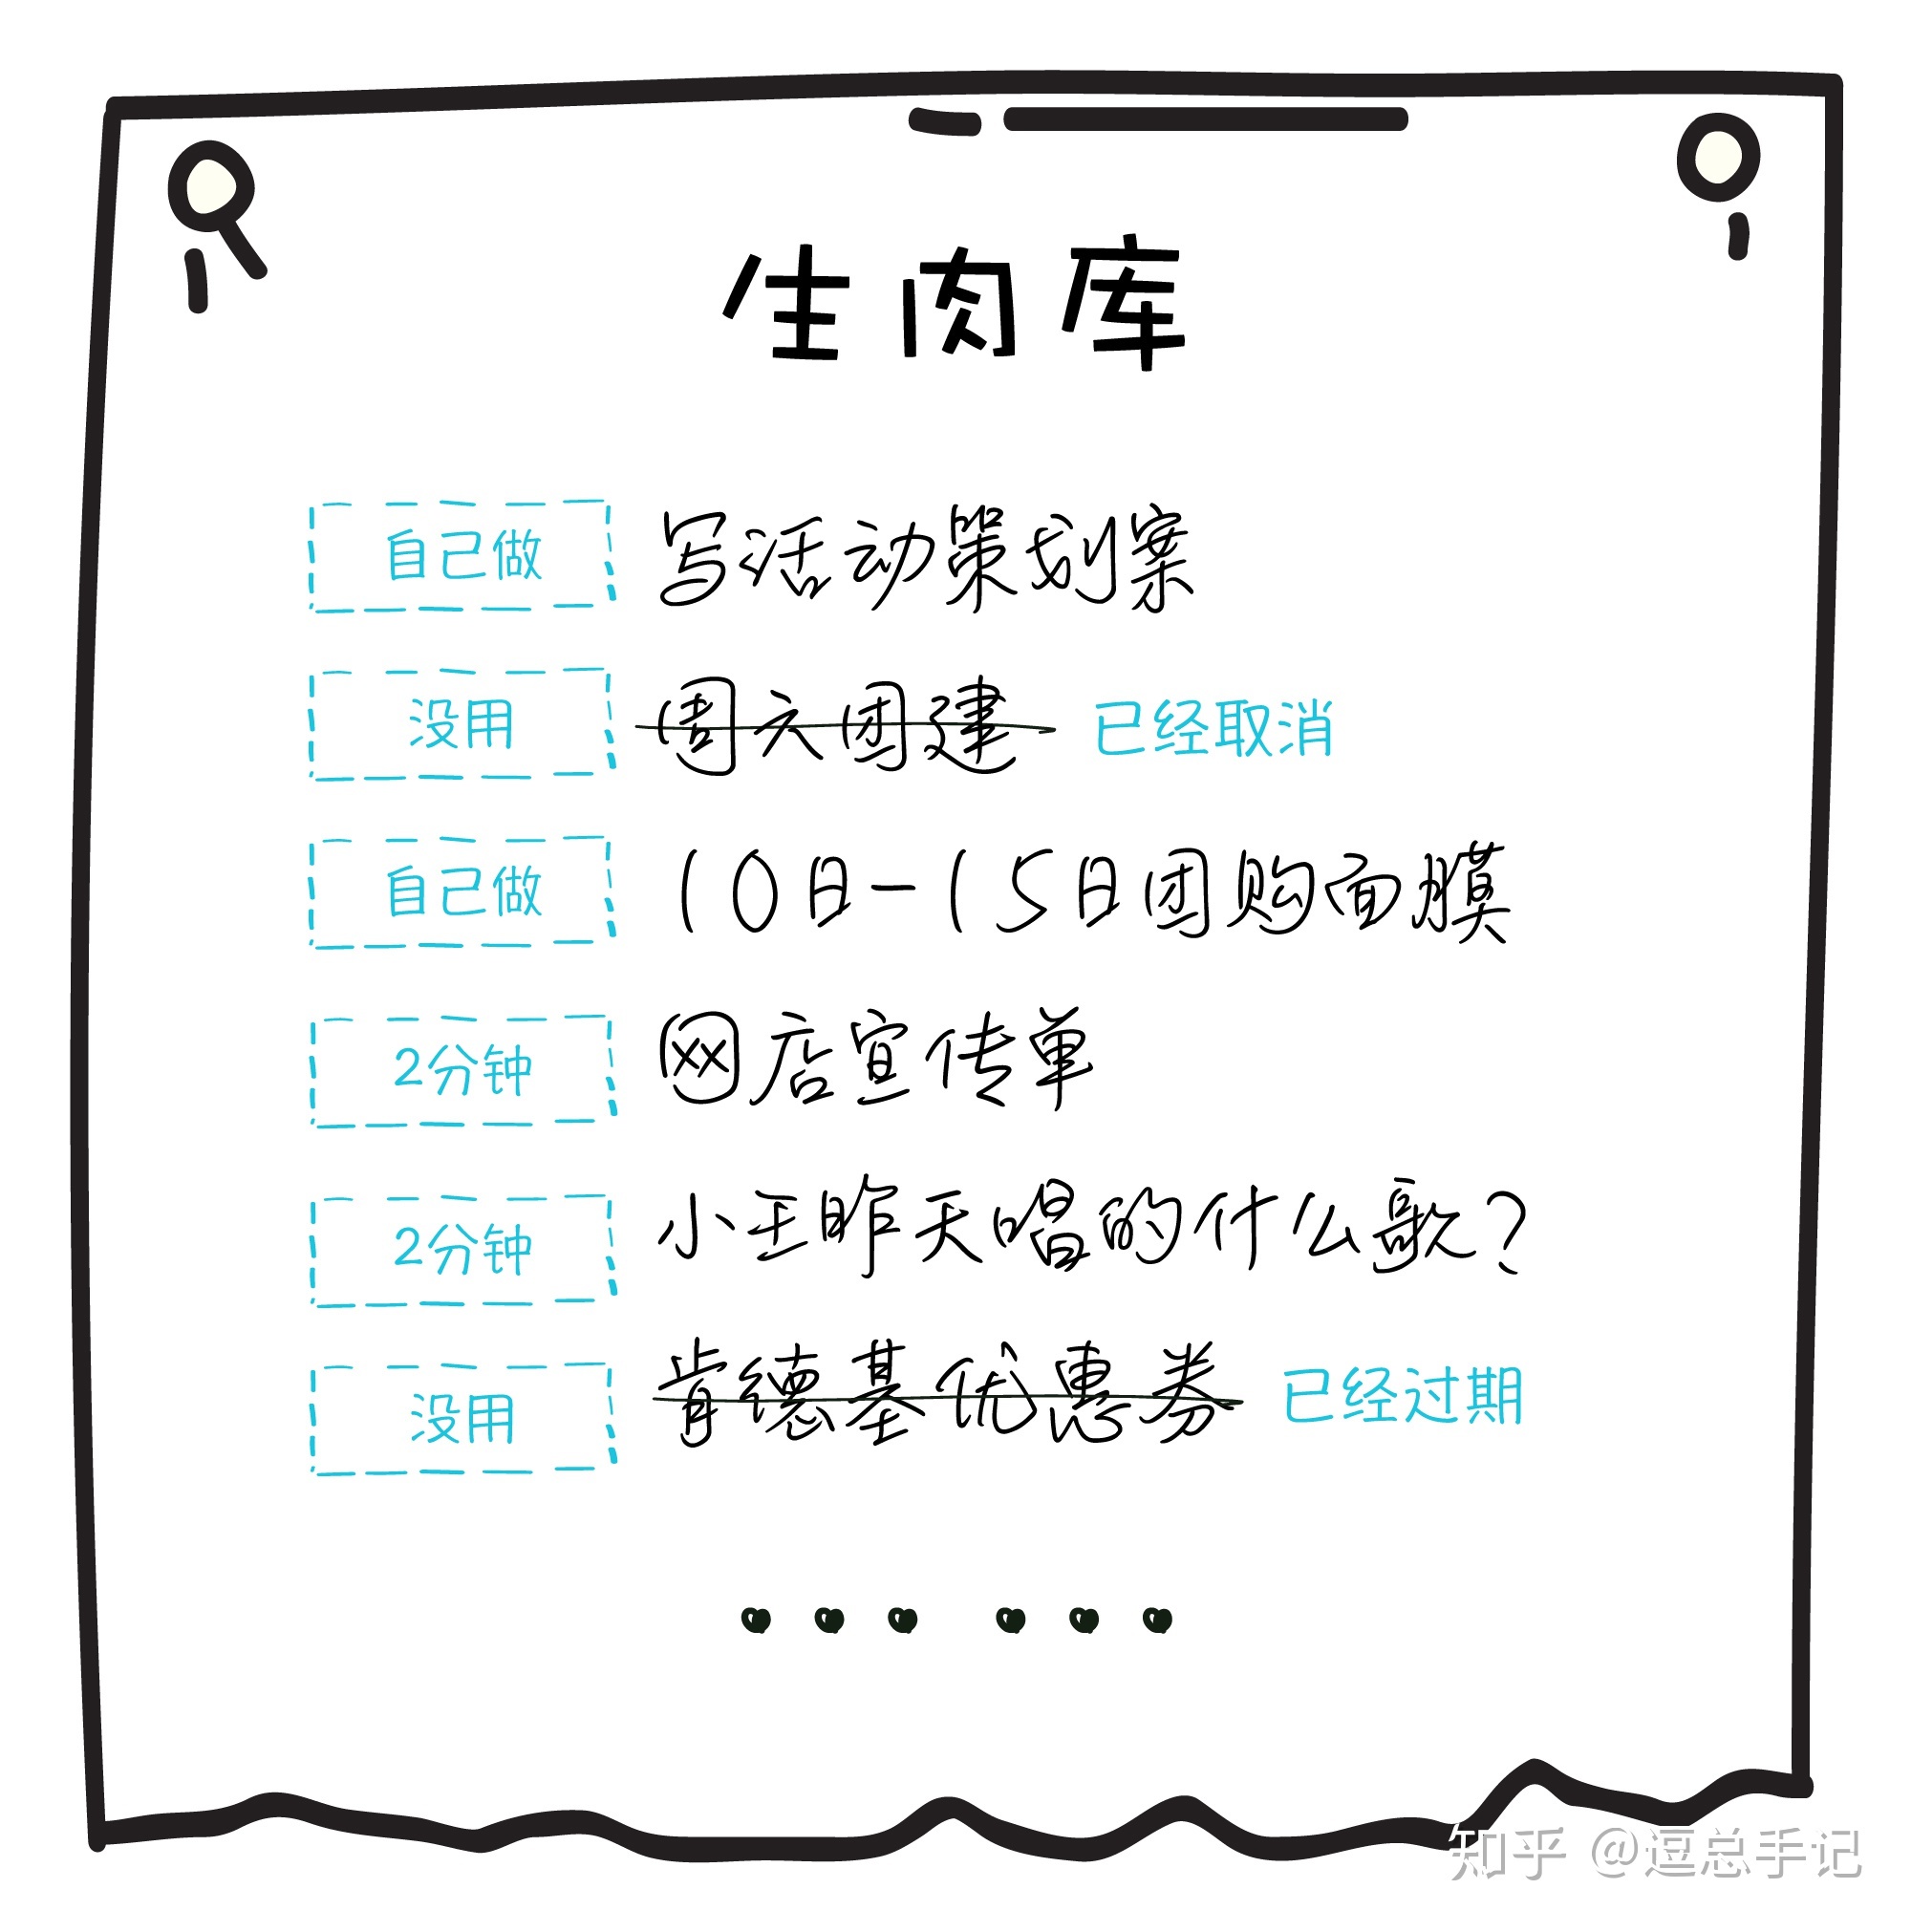 生肉库
自己做 写活动策划案
没用 周六团建 已经取消
自己做 10日-15日团购面膜
2分钟 网店宣传单
2分钟 小王昨天唱的什么歌?
没用 肯德基优惠券 已经过期
知乎 @逗总手记